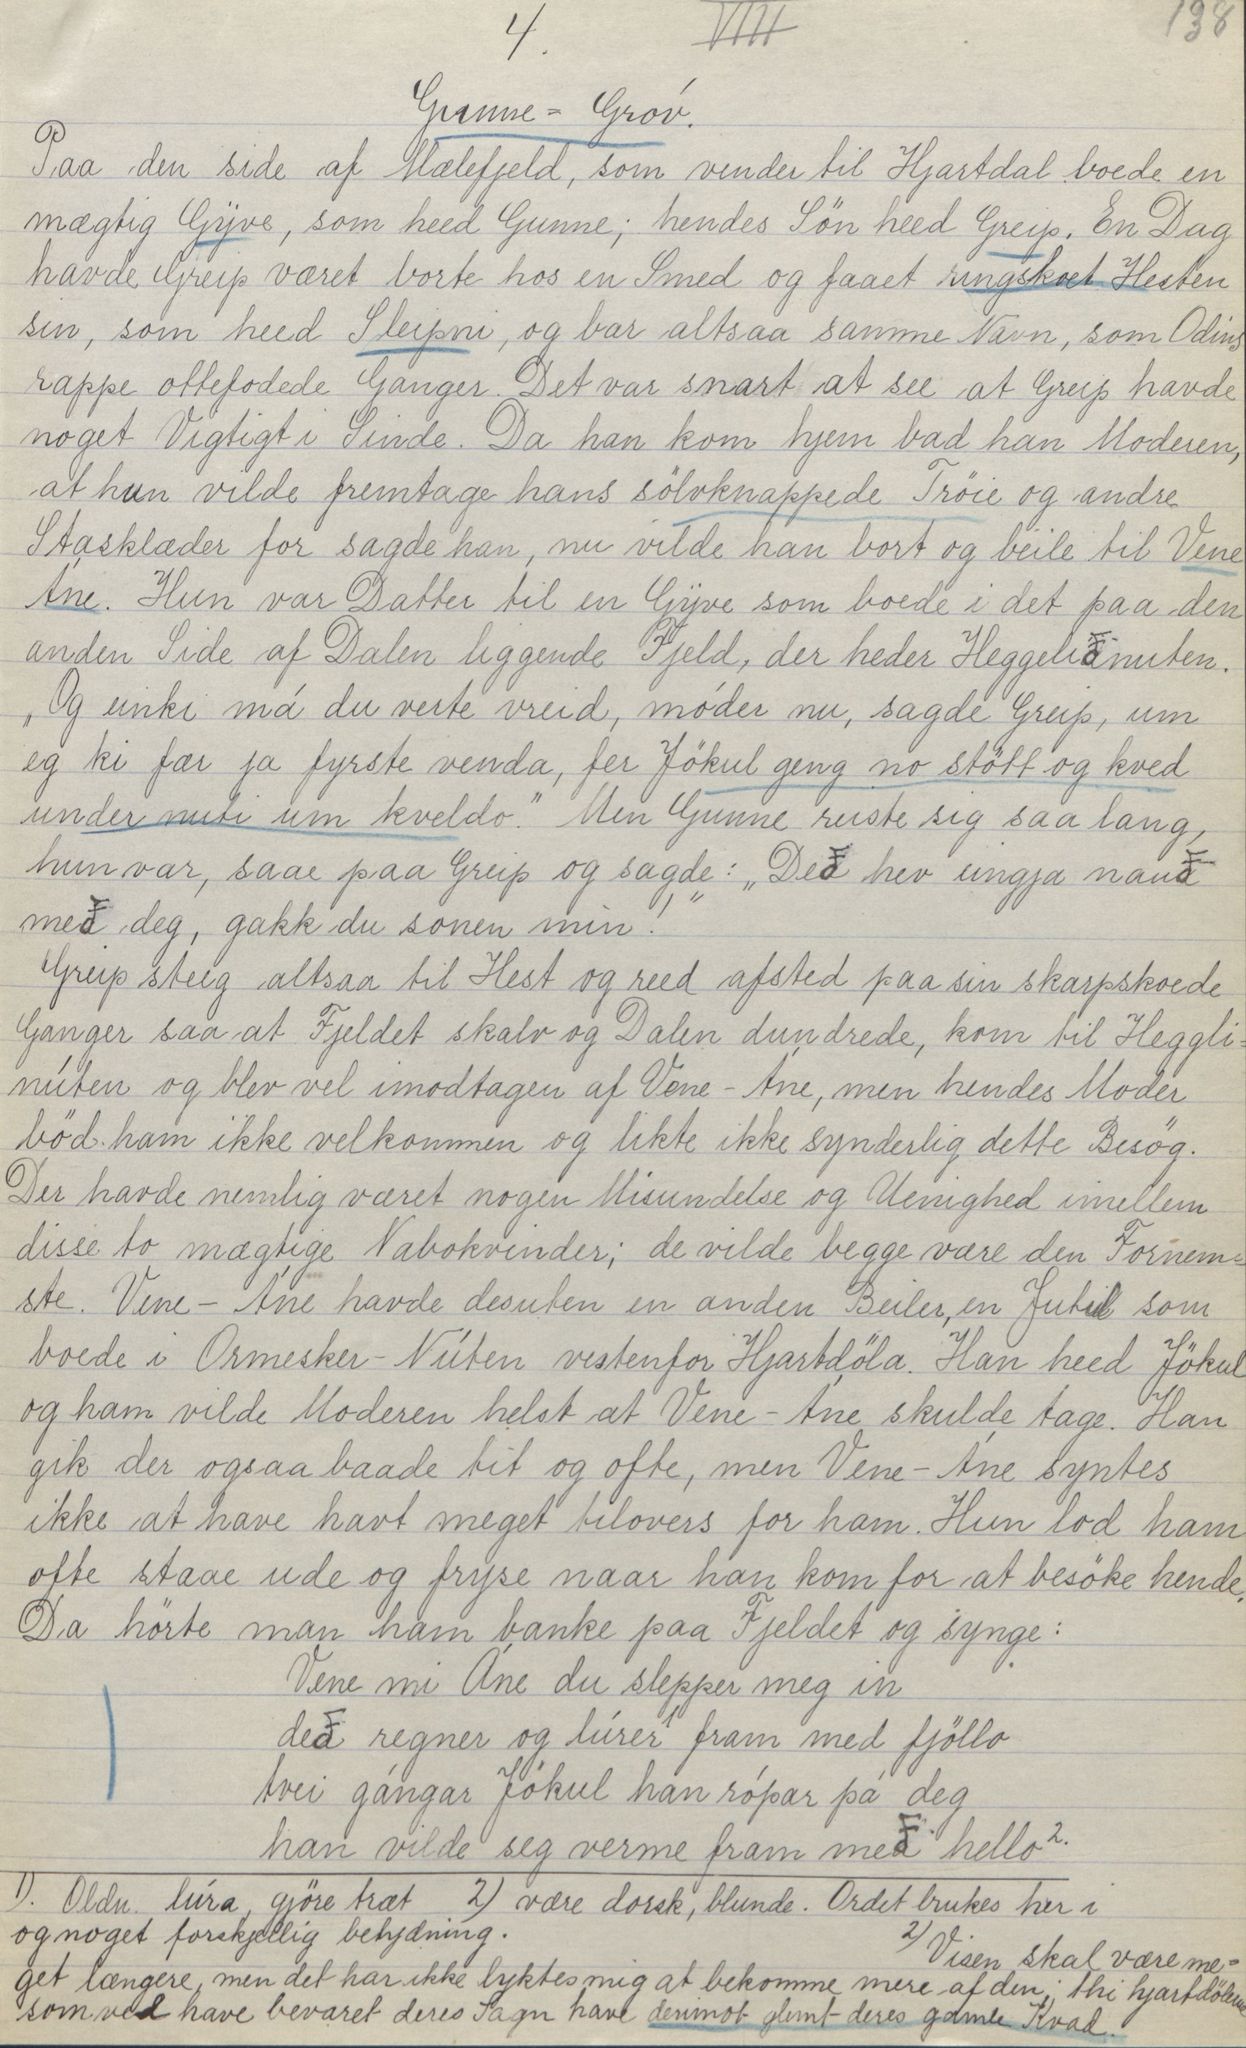 4. VIII 138
Gunne-Gróv.
Paa den side af Mælefjeld, som vender til Hjartdal boede en
mægtig Gÿve, som heed Gunne; hendes Sön heed Greip. En Dag
havde Greip været borte hos en Smed og faaet ringskoet Hesten
sin, som heed Sleipni, og bar altsaa samme Navn, som Odins
rappe ottefodede Ganger. Det var snart at see at Greip havde
noget Vigtigt i Sinde. Da han kom hjem bad han Moderen,
at hun vilde fremtage hans sölvknappede Tröie og andre
Stasklæder for sagde han, nu vilde han bort og beile til Vene
Áne. Hun var Datter til en Gÿve som boede i det paa den
anden Side af Dalen liggende Fjeld, der heder Heggeliðnuten.
„Og einki má du verte vreid, móder nu, sagde Greip, um
eg ki fær ja fyrste venda, fer Jökul geng no stött og kved
under nuti um kveldo." Men Gunne reiste sig saa lang,
hun var, saae paa Greip og sagde: „Deð hev eingja nauð
með deg, gakk du sonen min!"
Greip steig altsaa til Hest og reed afsted paa sin skarpskoede
Ganger saa at Fjeldet skalv og Dalen dundrede, kom til Heggli=
núten og blev vel imodtagen af Vene-Áne, men hendes Moder
böd ham ikke velkommen og likte ikke synderlig dette Besög.
Der havde nemlig været nogen Misundelse og Uenighed imellem
disse to mægtige Nabokvinder; de vilde begge være den Fornem=
ste. Vene-Áne havde desuten en anden Beiler, en Jutul som
boede i Ormesker-Núten vestenfor Hjartdöla. Han heed Jökul
og ham vilde Moderen helst at Vene-Áne skulde tage. Han
gik der ogsaa baade tit og ofte, men Vene-Áne syntes
ikke at have havt meget tilovers for ham. Hun lod ham
ofte staae ude og fryse naar han kom for at besöke hende.
Da hörte man ham banke paa Fjeldet og synge:
Vene mi Áne du slepper meg in
deð regner og lúrer¹ fram med fjöllo
tvei gángar Jökul han rópar pá deg
han vilde seg verme fram með hello².
1). Oldn. lúra, gjöre træt 2) være dorsk, blunde. Ordet brukes her i
og noget forskjellig betydning.
2) Visen skal være me=
get længere, men det har ikke lyktes mig at bekomme mere af den; thi hjartdölerne
som vel have bevaret deres Sagn have derimot glemt deres gamle Kvad.